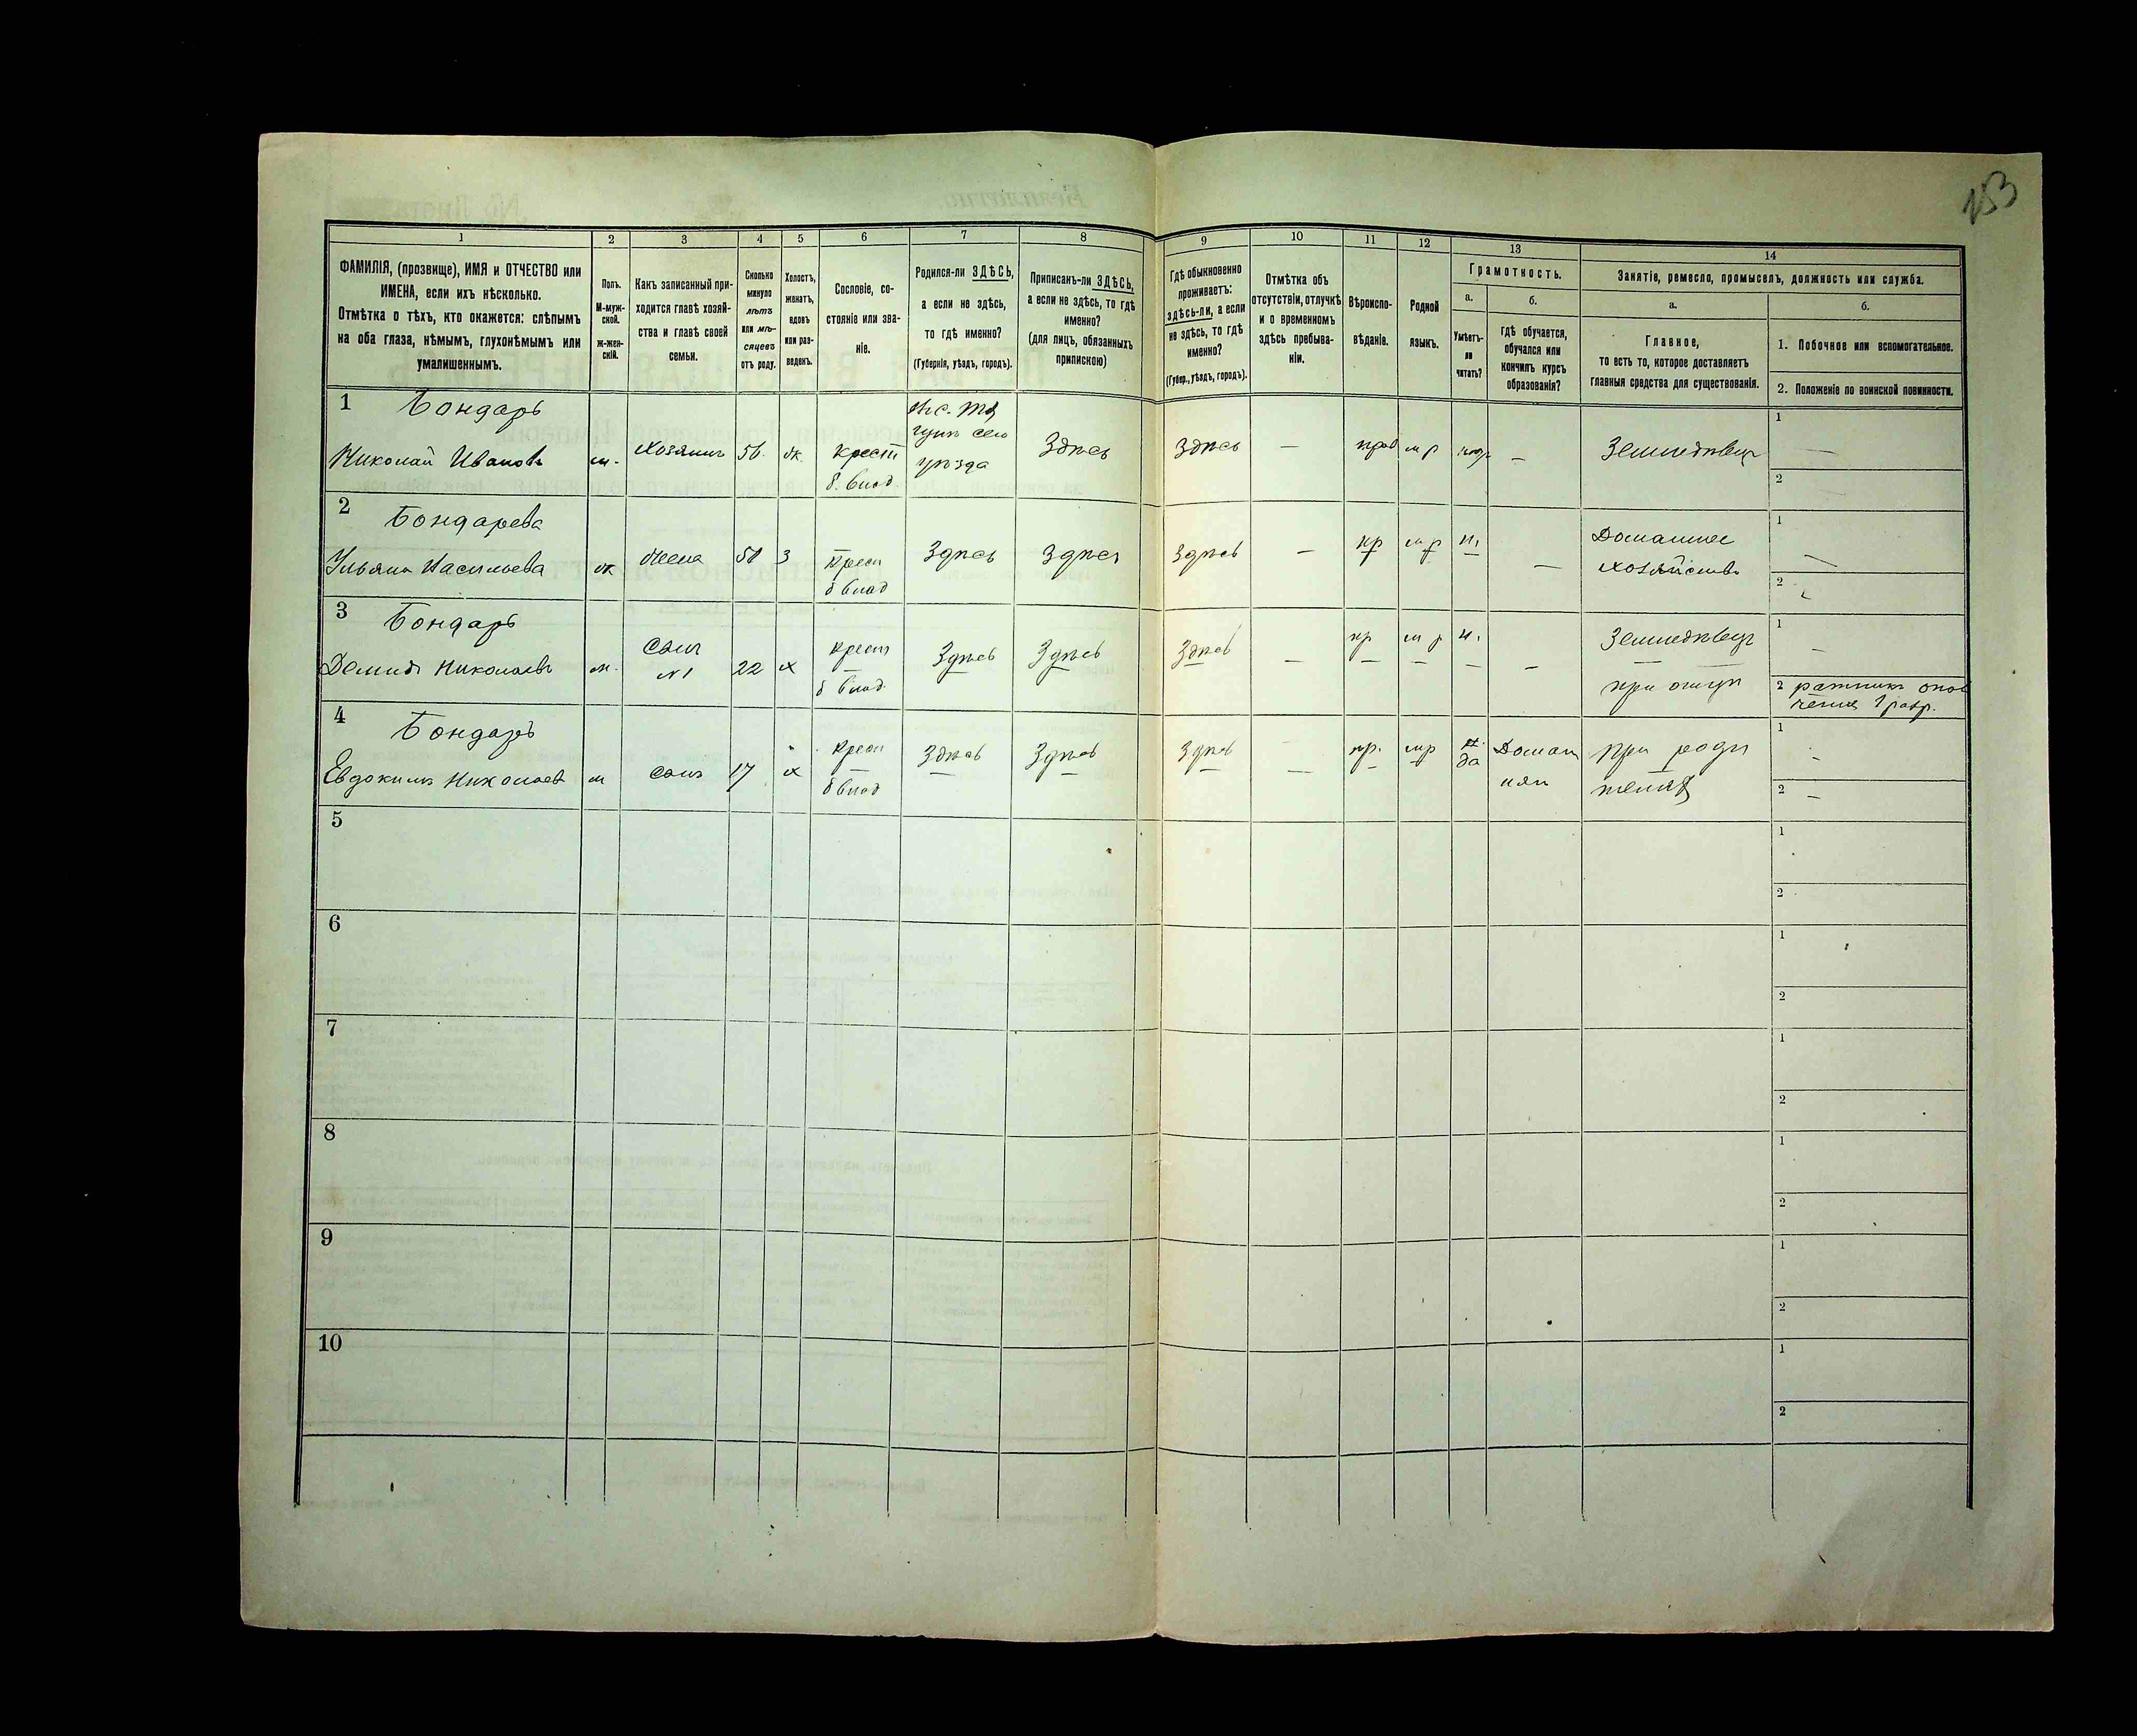 153
1
2
3
4
5
6
7
8
9
10
11
12
13
14
ФАМИЛІЯ, (прозвище), ИМЯ и ОТЧЕСТВО или
ИМЕНА, если ихъ нѣсколько.
Отмѣтка о тѣхъ, кто окажется: слѣпымъ
на оба глаза, нѣмымъ, глухонѣмымъ или
умалишеннымъ.
Полъ.
М-муж-
ской.
ж-жен-
скій.
Какъ записанный при-
ходится главѣ хозяй-
ства и главѣ своей
семьи.
Сколько
минуло
лѣтъ
или мѣ-
сяцевъ
отъ роду.
Холостъ,
женатъ,
вдовъ
или раз-
веденъ.
Сословіе, со-
стояніе или зва-
ніе.
Родился-ли ЗДѢСЬ,
а если не здѣсь,
то гдѣ именно?
(Губернія, уѣздъ, городъ).
Приписанъ-ли ЗДѢСЬ,
а если не здѣсь, то гдѣ
именно?
(для лицъ, обязанныхъ
припискою)
Гдѣ обыкновенно
проживаетъ:
здѣсь-ли, а если
не здѣсь, то гдѣ
именно?
(Губер., уѣздъ, городъ).
Отмѣтка объ
отсутствіи, отлучкѣ
и о временномъ
здѣсь пребыва-
ніи.
Вѣроиспо-
вѣданіе.
Родной
языкъ.
Грамотность.
а.
Умѣетъ-
ли
читать?
б.
гдѣ обучается,
обучался или
кончилъ курсъ
образованія?
Занятіе, ремесло, промыселъ, должность или служба.
а.
Главное,
то есть то, которое доставляетъ
главныя средства для существованія.
б.
1. Побочное или вспомогательное.
2. Положеніе по воинской повинности.
1 Бондарь
Николай Ивановъ
м.
Хозяинъ
ж.
крест
б. влад.
уѣзда
Здѣсь
Здѣсь
—
прав
м р
—
Земледѣлец
1 —
2
2 Бондарева
Ульяна Васильева
ж
жена
50
з
Крест
б влад
Здѣсь
Здѣсь
Здѣсь
—
пр
м р
н.
—
Домашнее
хозяйство
1 —
2
3 Бондарь
Демидъ Николаевъ
м.
Сынъ
№ 1
22
х
крест
б влад.
Здѣсь
Здѣсь
Здѣсь
—
пр
м р
н.
—
Земледѣлец
при отцѣ
1 —
2 ратникъ опол
ченія 1 разр.
4 Бондарь
Евдокимъ Николаев
м
сынъ
17
х
крест
б влад
Здѣсь
Здѣсь
Здѣсь
—
пр.
мр
да
Домаш
няя
при роди
теляхъ
1 -
2 —
5
1
2
6
1
2
7
1
2
8
1
2
9
1
2
10
1
2